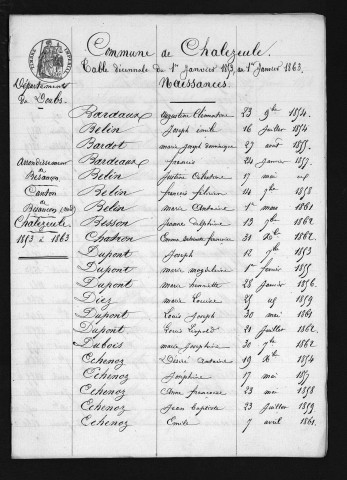 Commune de Chalezeule.
Table décennale du 1er Janvier 1853, au 1er Janvier 1863.
Naissances.
Département
du Doubs
Arrondissement
de
Besançon
Canton
de
Besançon (sud)
Chalezeule
1853 à 1863
Bardaux Augustine Clémentine 23 9bre 1854.
Belin Joseph émile 16 Juillet 1854
Bardot marie Joseph dominique 27 aout 1855.
Bardeaux francis 24 Janvier 1857.
Belin Justine Célestine 17 mai
Belin françois félicien 14 7bre 1858
Belin marie Antoine 1er mars 1861
Besson Jeanne delphine 13 7bre 1862
Chatron françoise 31 Xbre 1862.
Dupont Joseph 12 9bre 1853
Dupont marie magdeleine 1er fevrier 1855
Dupont marie henriette 28 Janvier 1856
Diez marie Louise 25 1859
Dupont Louis Joseph 30 mai 1861
Dupont Louis Leopold 21 Juillet 1862.
Dubois marie Joséphine 30 7bre 1862
Echenoz Désiré Antoine 19 Xbre 1854
Echenoz Joséphine 17 mai 1857
Echenoz Anne francoise 23 mai 1858.
Echenoz Jean Baptiste 23 Juillet 1859
Echenoz Emile 7 avril 1861.